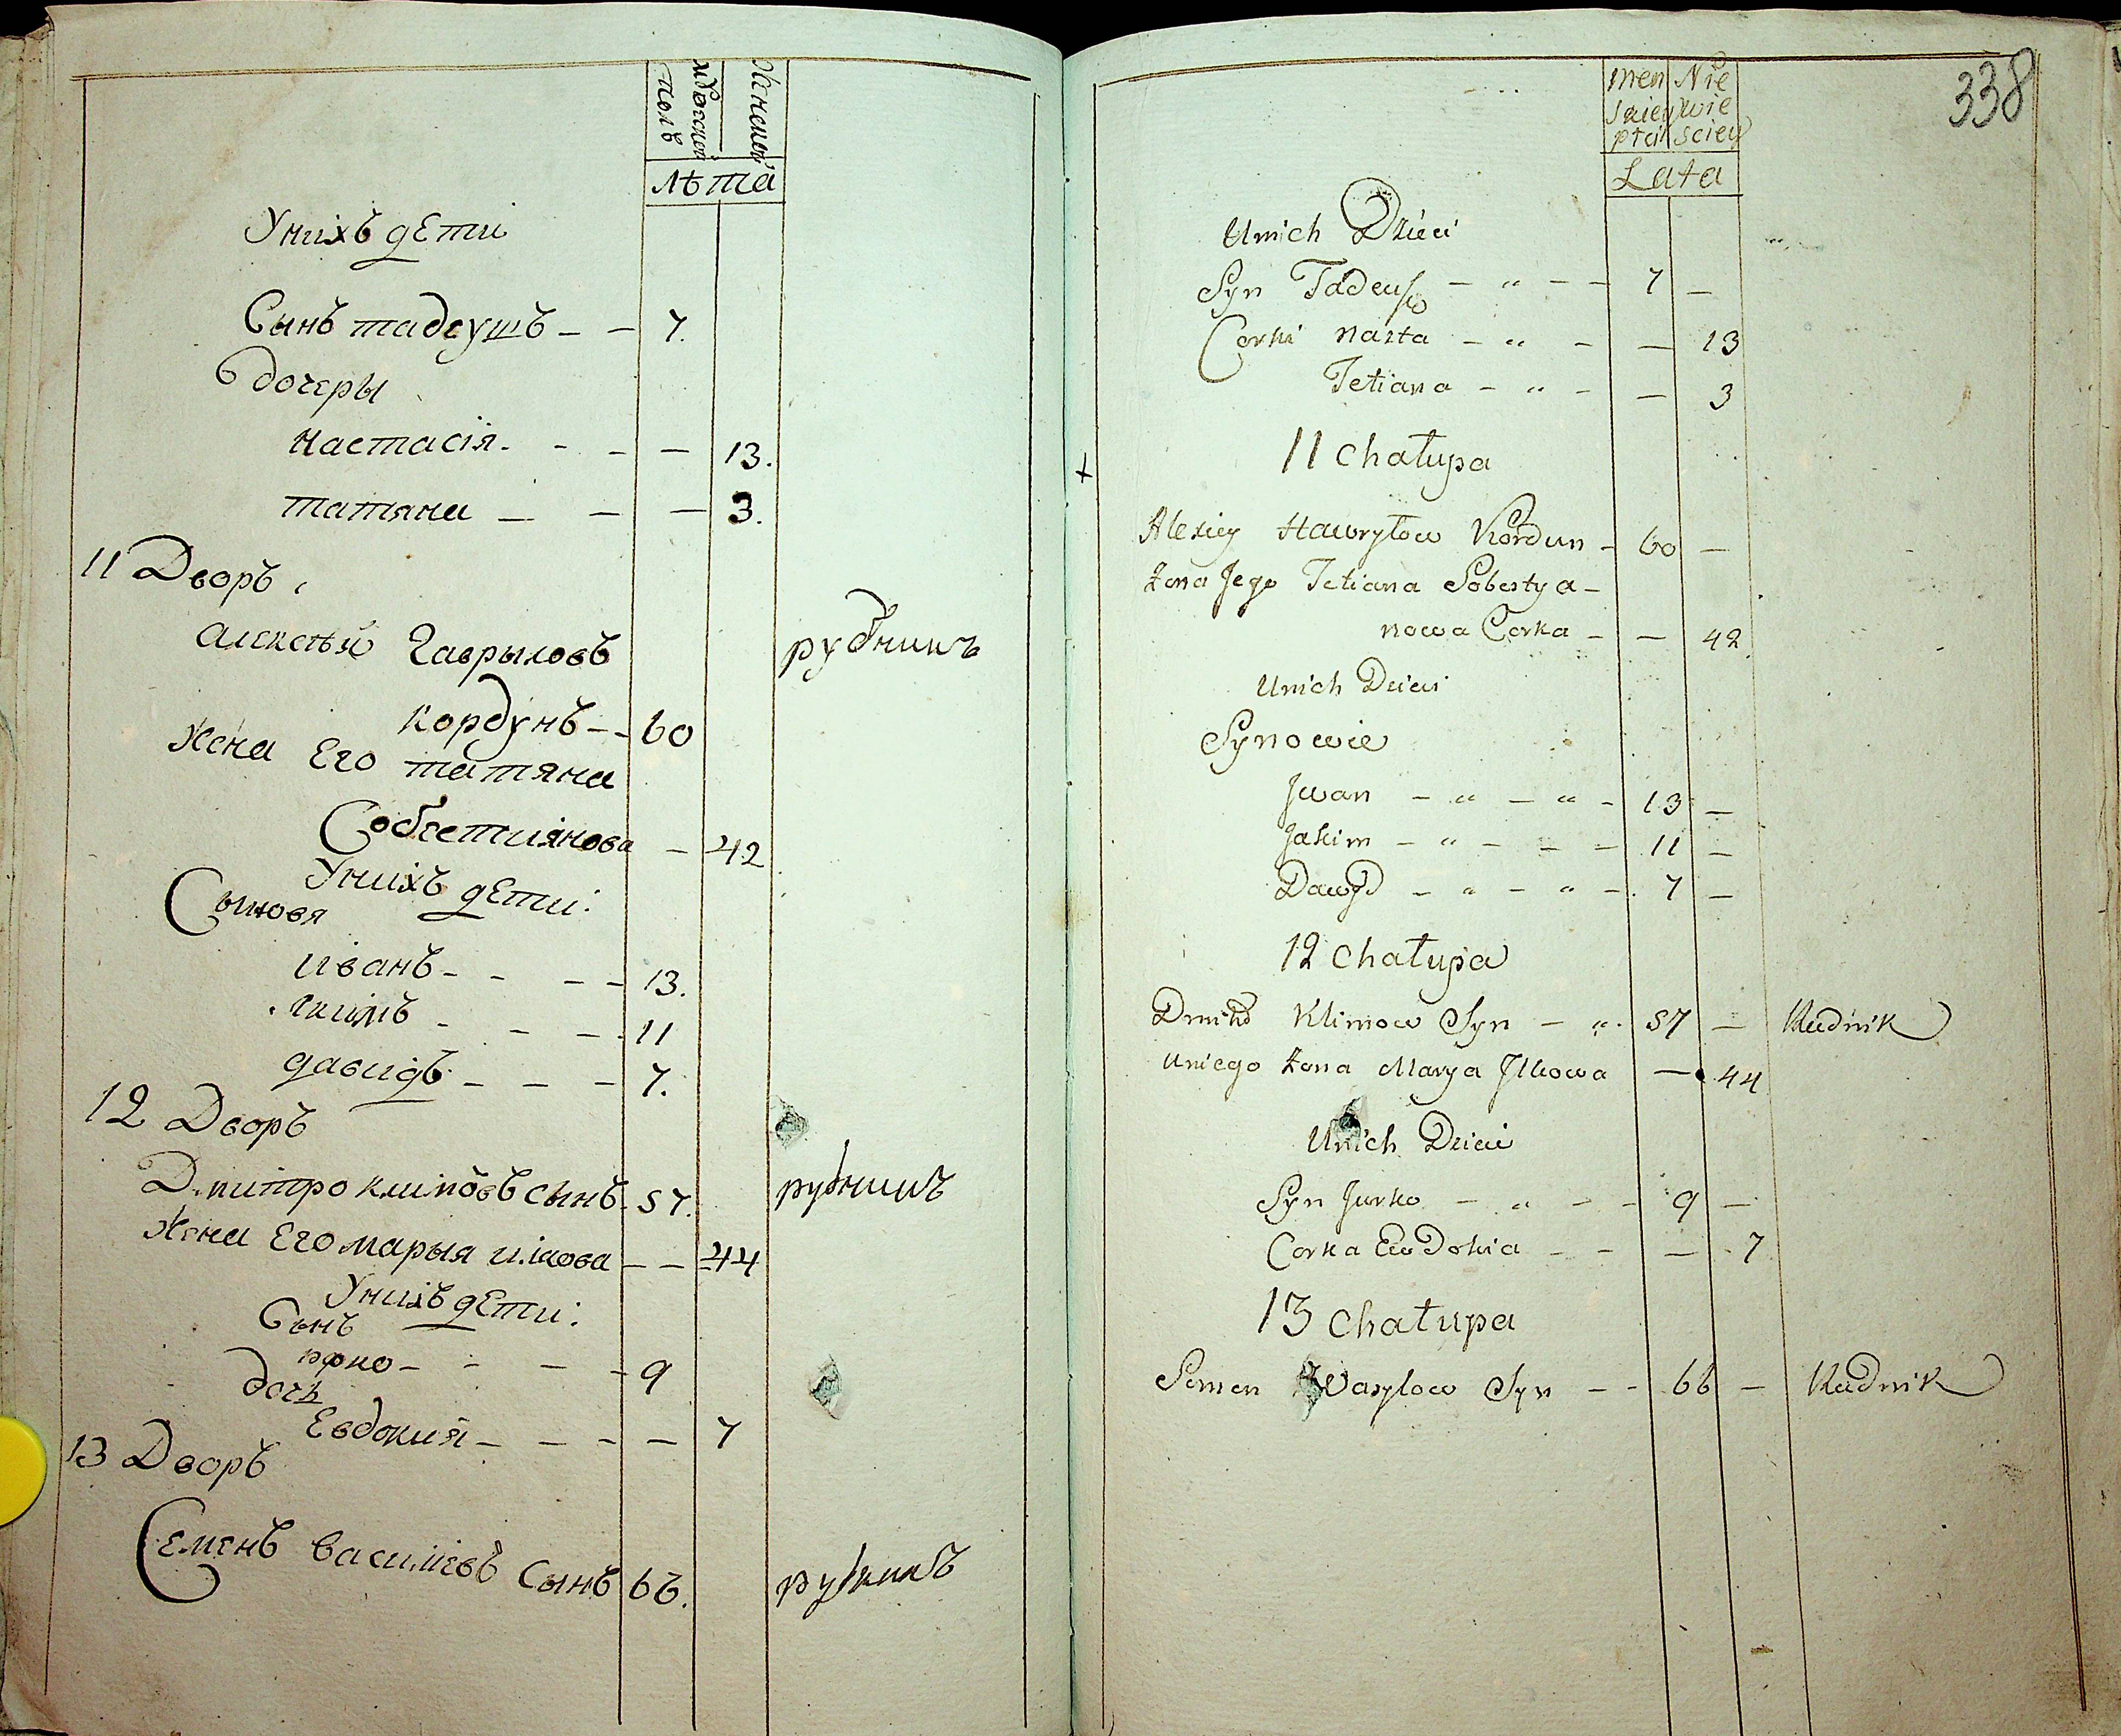 мужеской
полъ
Женской
лѣта
Унихъ дЕти
Сынъ тадеушъ - - 7.
дочеры
Настасія - - - 13.
татяна - - - 3.
11 Дворъ
Алексѣй Гаврыловъ рудникъ
кордунъ - - 60
Жена Его татяна
Собестиянова - 42
Унихъ дЕти:
Сыновя
иванъ - - - - 13.
якимъ - - - 11
давидъ - - - 7.
12 Дворъ
Дмитро климовъ сынъ 57. рудникъ
Жена Его марыя илкова - - 44
Унихъ дЕти:
Сынъ
юрко - - - - 9
дочь
Евдокия - - - - 7
13 Дворъ
Семенъ василіевъ Сынъ 66. рудникъ
338
men Nie
skiey wie
płci sciey
Lata
Unich Dzieci
Syn Tadeusz - " - - 7 -
Corki Nasta - " - - 13
Tetiana - " - - 3
11 Chałupa
Alexiey Hawryłow Kordun - 60 -
Żona Jego Tetiana Sobestya-
nowa Corka - - 42
Unich Dzieci
Synowie
Jwan - " - " - 13 -
Jakim - " - - - 11 -
Dawyd - " - " - 7 -
12 Chałupa
Dmitro Klimow Syn - " 57 - Rudnik
Uniego Żona Marya Jlkowa - 44
Unich Dzieci
Syn Jurko - " - - 9 -
Corka Ewdokia - - - 7
13 Chałupa
Semen Wasylow Syn - - 66 - Rudnik